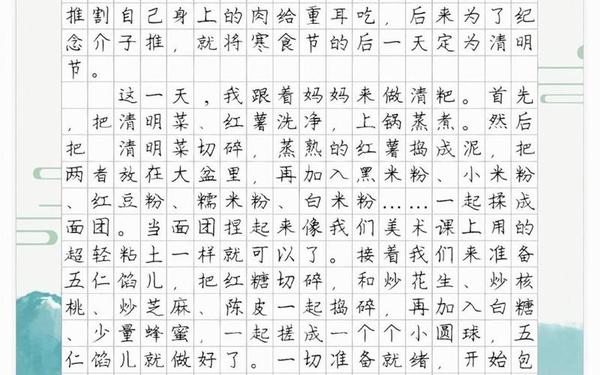 推割自己身上的肉给重耳吃，后来为了纪
念介子推，就将寒食节的后一天定为清明
节。
这一天，我跟着妈妈来做清粑。首先
，把清明菜、红薯洗净，上锅蒸煮。然后
把 清明菜切碎，蒸熟的红薯捣成泥，把
两者放在大盆里，再加入黑米粉、小米粉
、红豆粉、糯米粉、白米粉……一起揉成
面团。当面团捏起来像我们美术课上用的
超轻粘土一样就可以了。接着我们来准备
五仁馅儿，把红糖切碎，和炒花生、炒核
桃、炒芝麻、陈皮一起捣碎，再加入白糖
、少量蜂蜜，一起搓成一个个小圆球，五
仁馅儿就做好了。一切准备就绪，开始包